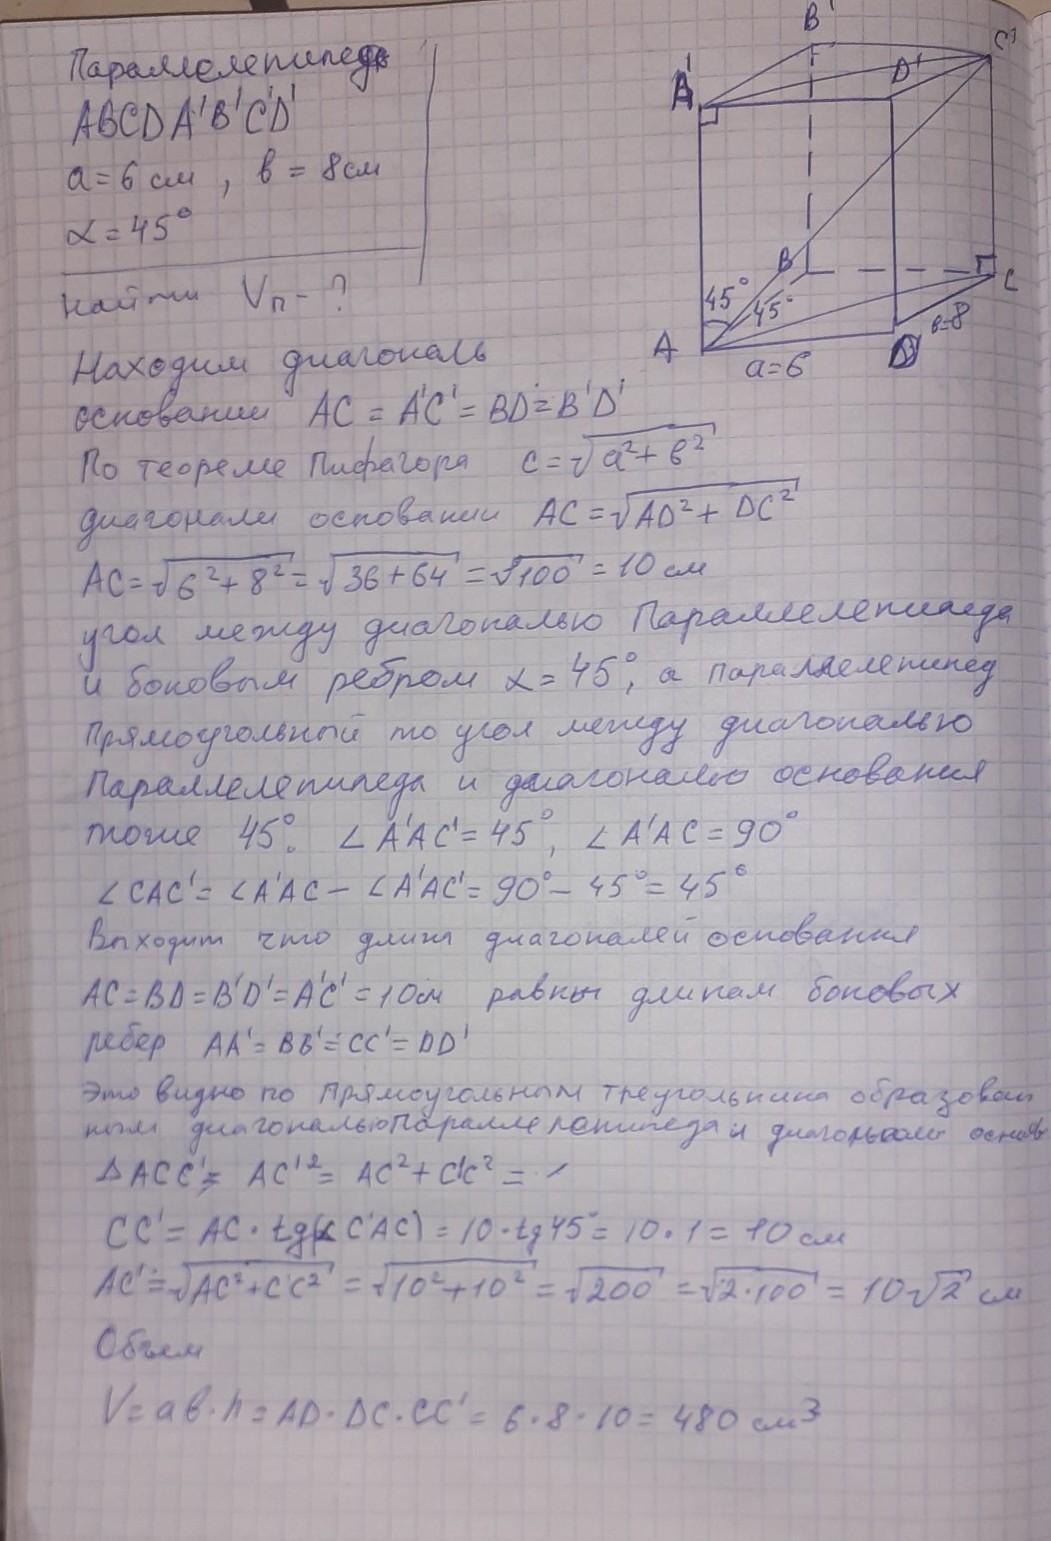 Параллелепипед
ABCDA'B'C'D'
a=6 см, в=8см
α=45°
найти Vп-?
B'
C'
A'
D'
B
45°
45°
C
A
a=6
D
в=8
Находим диагональ
основании AC=A'C'=BD=B'D'
По теореме Пифагора c=√a²+в²
диагонали основании AC=√AD²+DC²
AC=√6²+8²=√36+64=√100=10 см
угол между диагональю Параллелепипеда
и боковым ребром α=45°, а параллелепипед
Прямоугольный то угол между диагональю
Параллелепипеда и диагональю основания
тоже 45°. ∠A'AC'=45°, ∠A'AC=90°
∠CAC'=∠A'AC-∠A'AC'=90°-45°=45°
Выходит что длина диагоналей основания
AC=BD=B'D'=A'C'=10см равны длинам боковых
ребер AA'=BB'=CC'=DD'
Это видно по Прямоугольным треугольника образован
ным диагональю Параллелепипеда и диагональю основ
△ACC'= AC'²=AC²+C'C²=
CC'=AC·tg(∠C'AC)=10·tg45°=10·1=10 см
AC'=√AC²+CC²=√10²+10²=√200=√2·100=10√2 см
Объем
V=aв·h=AD·DC·CC'=6·8·10=480 см3